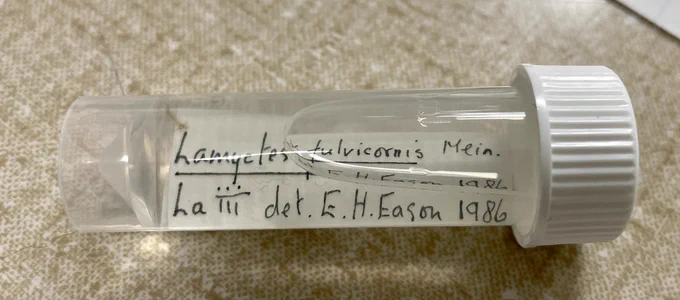 Lamyctes fulvicornis Mein.
E. H. Eason 1986
La iii det. E. H. Eason 1986